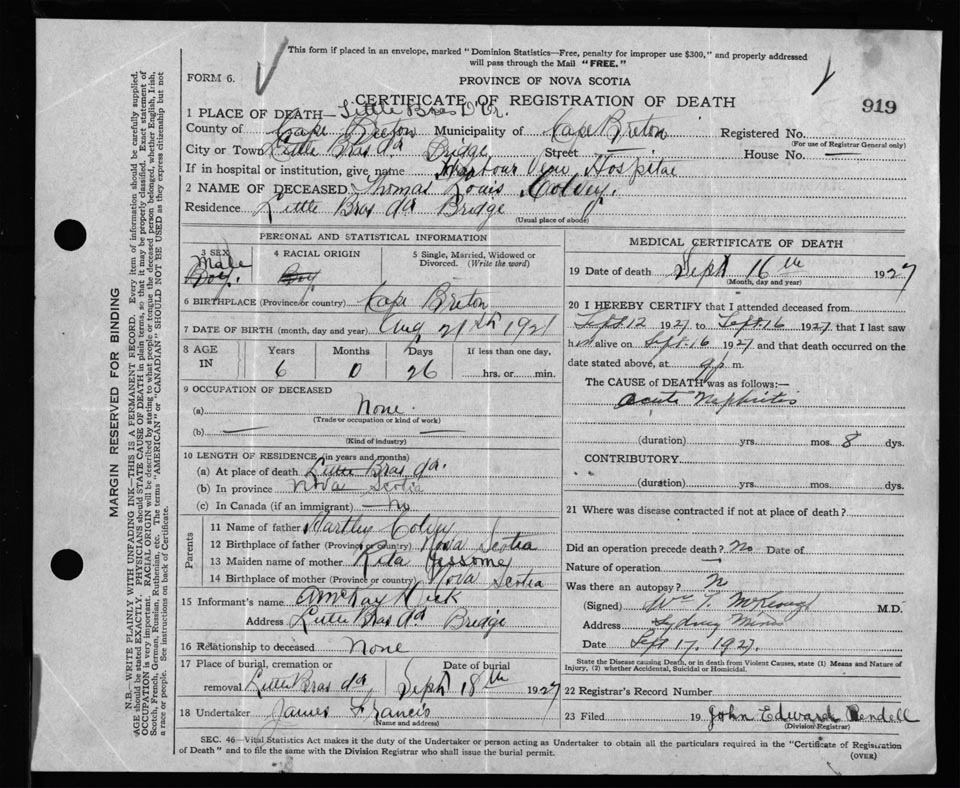 This form if placed in an envelope, marked "Dominion Statistics—Free, penalty for improper use $300," and properly addressed
will pass through the Mail "FREE."
FORM 6.
PROVINCE OF NOVA SCOTIA
CERTIFICATE OF REGISTRATION OF DEATH
919
1 PLACE OF DEATH— Little Bras D'Or.
County of Cape Breton Municipality of Cape Breton Registered No.
(For use of Registrar General only)
City or Town Little Bras d'or Bridge Street — House No. —
If in hospital or institution, give name Harbour View Hospital
2 NAME OF DECEASED Thomas Louis
Residence Little Bras d'or Bridge
(Usual place of abode)
PERSONAL AND STATISTICAL INFORMATION
3 SEX Male Boy.
4 RACIAL ORIGIN Boy
5 Single, Married, Widowed or Divorced. (Write the word)
6 BIRTHPLACE (Province or country) Cape Breton
7 DATE OF BIRTH (month, day and year) Aug 21st 1921
8 AGE IN Years Months Days If less than one day,
6 0 26 hrs. or min.
9 OCCUPATION OF DECEASED
(a) None.
(Trade or occupation or kind of work)
(b) —
(Kind of industry)
10 LENGTH OF RESIDENCE (in years and months)
(a) At place of death Little Bras d'or.
(b) In province Nova Scotia
(c) In Canada (if an immigrant) — No
Parents
11 Name of father Hartley
12 Birthplace of father (Province or country) Nova Scotia
13 Maiden name of mother Rita Jessome
14 Birthplace of mother (Province or country) Nova Scotia
15 Informant's name
Address Little Bras d'or Bridge
16 Relationship to deceased None
17 Place of burial, cremation or removal Little Bras d'or, Date of burial Sept 18th 1927
18 Undertaker James Francis
(Name and address)
MEDICAL CERTIFICATE OF DEATH
19 Date of death Sept 16th 1927
(Month, day and year)
20 I HEREBY CERTIFY that I attended deceased from
Sept. 12 1927 to Sept. 16 1927, that I last saw
him alive on Sept. 16 1927 and that death occurred on the
date stated above, at 9 p. m.
The CAUSE OF DEATH was as follows:—
acute Nephritis
(duration) yrs. mos. 8 dys.
CONTRIBUTORY
(duration) yrs. mos. dys.
21 Where was disease contracted if not at place of death?
Did an operation precede death? No Date of
Nature of operation
Was there an autopsy? N
(Signed) Wm T. McKeough M.D.
Address Sydney Mines
Date Sept 17. 1927.
State the Disease causing Death, or in death from Violent Causes, state (1) Means and Nature of
Injury, (2) whether Accidental, Suicidal or Homicidal.
22 Registrar's Record Number
23 Filed 19 John Edward Rendell
(Division Registrar)
SEC. 46—Vital Statistics Act makes it the duty of the Undertaker or person acting as Undertaker to obtain all the particulars required in the "Certificate of Registration
of Death" and to file the same with the Division Registrar who shall issue the burial permit.
(OVER)
MARGIN RESERVED FOR BINDING
N.B.—WRITE PLAINLY WITH UNFADING INK—THIS IS A PERMANENT RECORD. Every item of information should be carefully supplied.
AGE should be stated EXACTLY. PHYSICIANS should STATE CAUSE OF DEATH in plain terms, so that it may be properly classified. Exact statement of
OCCUPATION is very important. RACIAL ORIGIN will be described by stating to what people or tongue the deceased person belonged, whether English, Irish,
Scotch, French, German, Russian, Ruthenian, etc. The terms "AMERICAN" or "CANADIAN" SHOULD NOT BE USED as they express citizenship but not
a race or people. See instructions on back of Certificate.